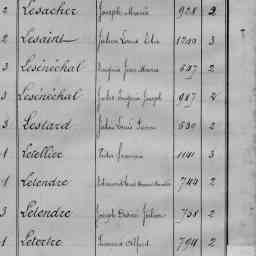 2 Lesacher Joseph Marie 928 2
2 Lesaint Jules Louis 1200 3
3 Lesénéchal Eugène Jean Marie 547 2
3 Lesénéchal Jules Eugène Joseph 987 2
3 Lestard Jules Louis 539 2
1 Letellier Victor François 1141 3
1 Letendre 744 2
3 Letendre Joseph Désiré Julien 758 2
1 Letertre Alfred 794 2